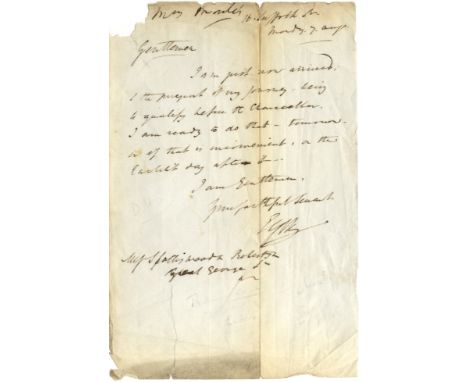 16 Suffolk St
Monday 7 Augt
Gentlemen
I am just now arrived,
& the purport of my journey being
to qualify before the Chancellor
I am ready to do that - tomorrow
or if that is inconvenient, on the
Earliest day after it -
I am Gentlemen
Your faithful Servant
Mess Spottiswood & Robertson
Great George St